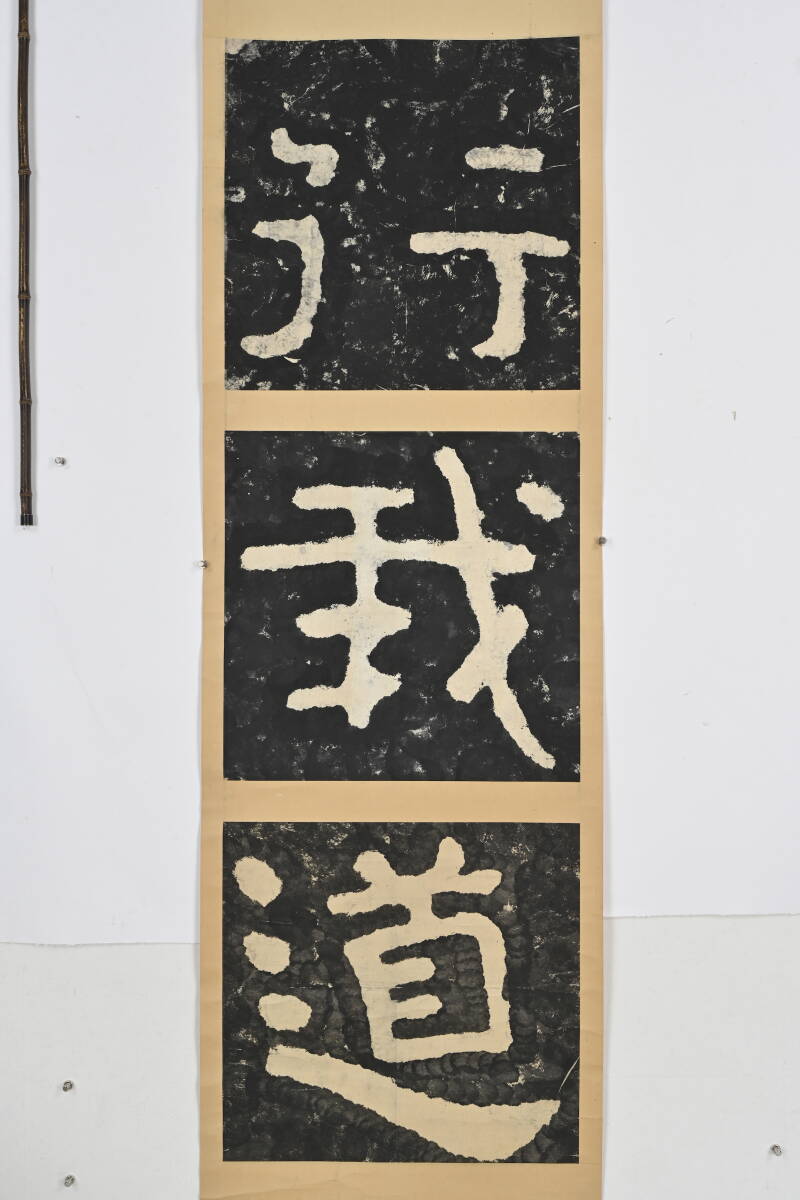 行
我
道